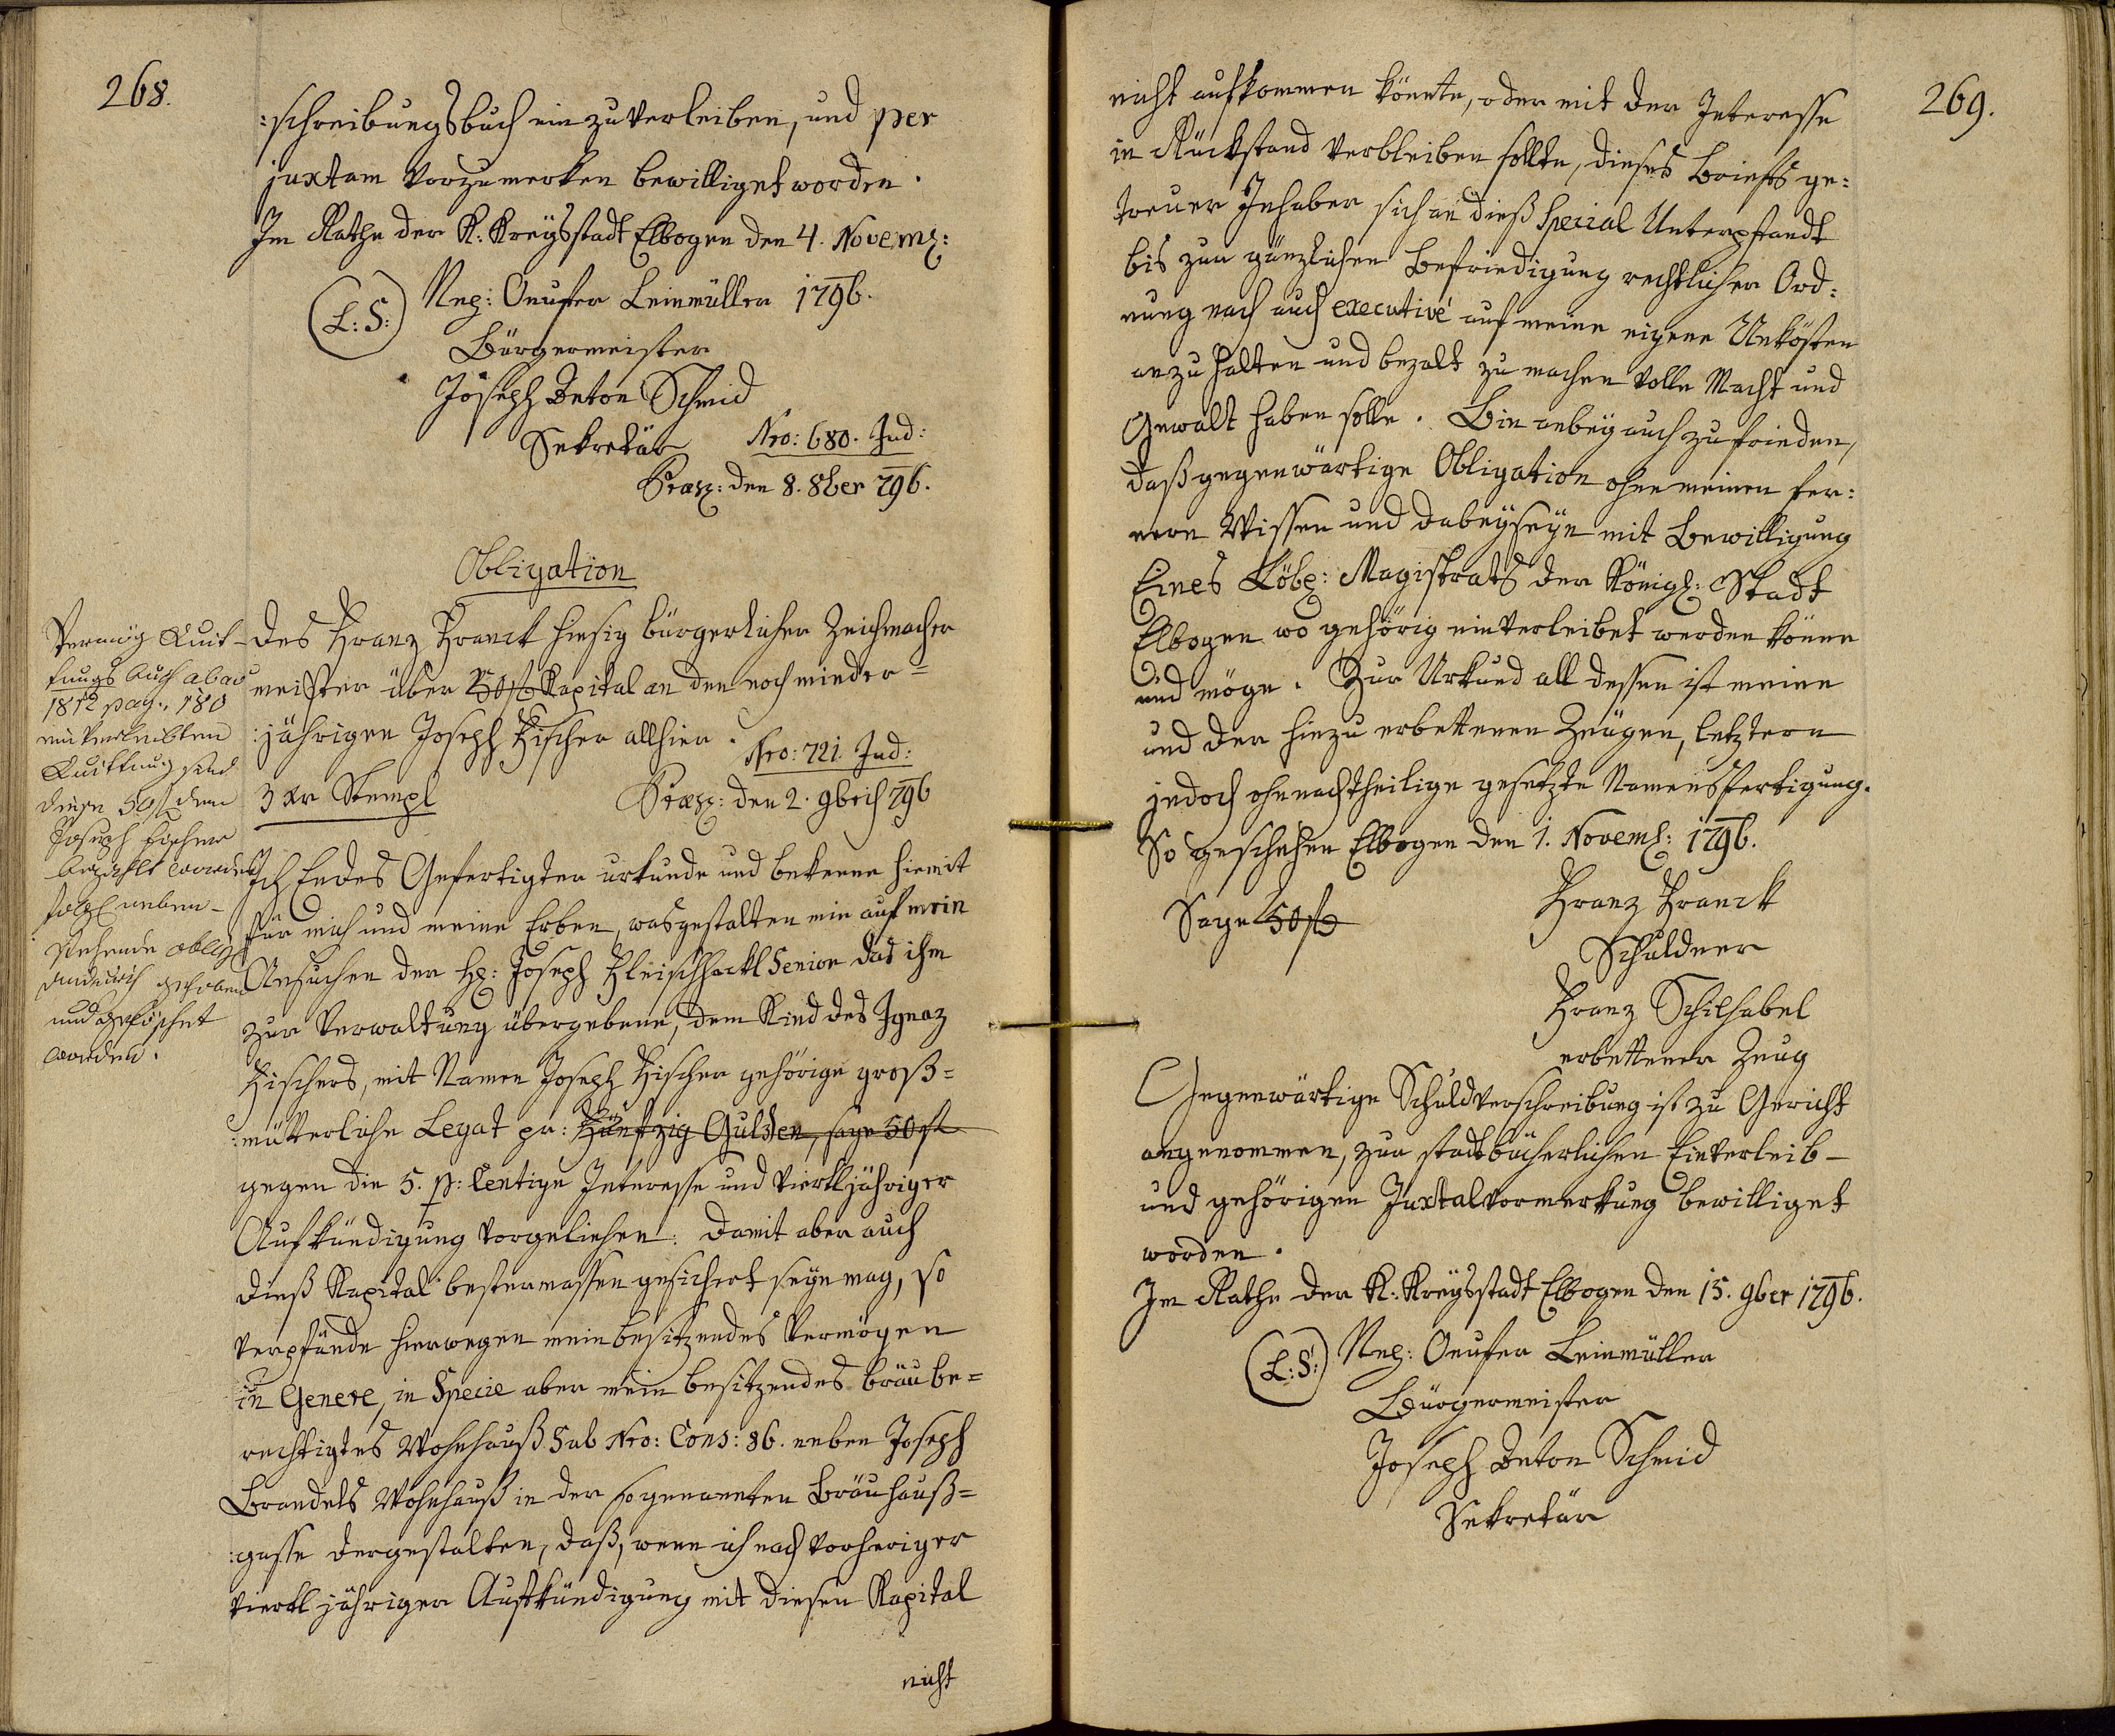 268.
:schreibungsbuch einzuverleiben, und per
juxtam vorzumerken bewilliget worden.
Im Rathe der K: Kreysstadt Elbogen den 4. Novem:
(L:S:) Nep: Onufer Leinmüller 1796.
Bürgermeister
Joseph Anton Schmid
Sekretär
Nro: 680. Ind:
Præs: den 8. 8ber 796.
Obligation
des Franz Franck hiesig bürgerlicher Zeichmacher
meister über 50 f Kapital an den noch minder=
:jährigen Joseph Fischer allhier.
Nro: 721. Ind:
3 Xr Stempl
Præs: den 2. 9bris 796
Vermög Quit-
tungs Buch ab ao
1812 pag. 180
einverleibten
Quittung sind
diese 50 f dem
Joseph Fischer
bezahlt worden
folgl neben-
stehende oblig
dadurch gehoben
und gelöschet
worden.
Ich Endes Gefertigter urkunde und bekenne hiemit
für mich und meine Erben, wasgestalten mir auf mein
Ansuchen der H: Joseph Fleischhackl Senior das ihm
zur Verwaltung übergebene, dem Kind des Ignaz
Fischers, mit Namen Joseph Fischer gehörige groß=
:mütterliche Legat pr: Fünfzig Gulden, sage 50 f
gegen die 5. p: Centige Interesse und viertljähriger
Aufkündigung vorgeliehen. Damit aber auch
dieß Kapital bestermassen gesichert seyn mag, so
verpfände hierwegen mein besitzendes Vermögen
in Genere, in Specie aber mein besitzendes bräube=
rechtigtes Wohnhauß Sub Nro: Cons: 86. neben Joseph
Brandels Wohnhauß in der sogenannten Bräuhauß=
:gasse dergestalten, daß, wenn ich nach vorheriger
viertl jähriger Aufkündigung mit diesen Kapital
nicht
269.
nicht aufkommen könnte, oder mit der Interesse
in Rückstand verbleiben sollte, dieses Briefs ge:
treuer Inhaber sich an dieß Special Unterpfandt
bis zur gänzlichen Befriedigung rechtlicher Ord:
nung nach auch executivé auf meine eigene Unkösten
anzuhalten und bezalt zu machen volle Macht und
Gewalt haben solle. Bin anbey auch zufrieden,
daß gegenwärtige Obligation ohne meinen fer:
nern Wissen und dabeyseyn mit Bewilligung
Eines Löbl: Magistrats der Königl: Stadt
Elbogen wo gehörig einverleibet werden könne
und möge. Zur Urkund all dessen ist meine
und der hinzu erbettenen Zeugen, letztern
jedoch ohnnachtheilige gesetzte Namensfertigung.
So geschehen Elbogen den 1. Novem: 1796.
Sage 50 f
Franz Franck
Schuldner
Franz Schilhabel
erbettener Zeug
Gegenwärtige Schuldverschreibung ist zu Gericht
angenommen, zur stadtbücherlichen Einverleib-
und gehörigen Juxtalvormerkung bewilliget
worden.
Im Rathe der K: Kreysstadt Elbogen den 15. 9ber 1796.
(L:S:) Nep: Onufer Leinmüller
Bürgermeister
Joseph Anton Schmid
Sekretär